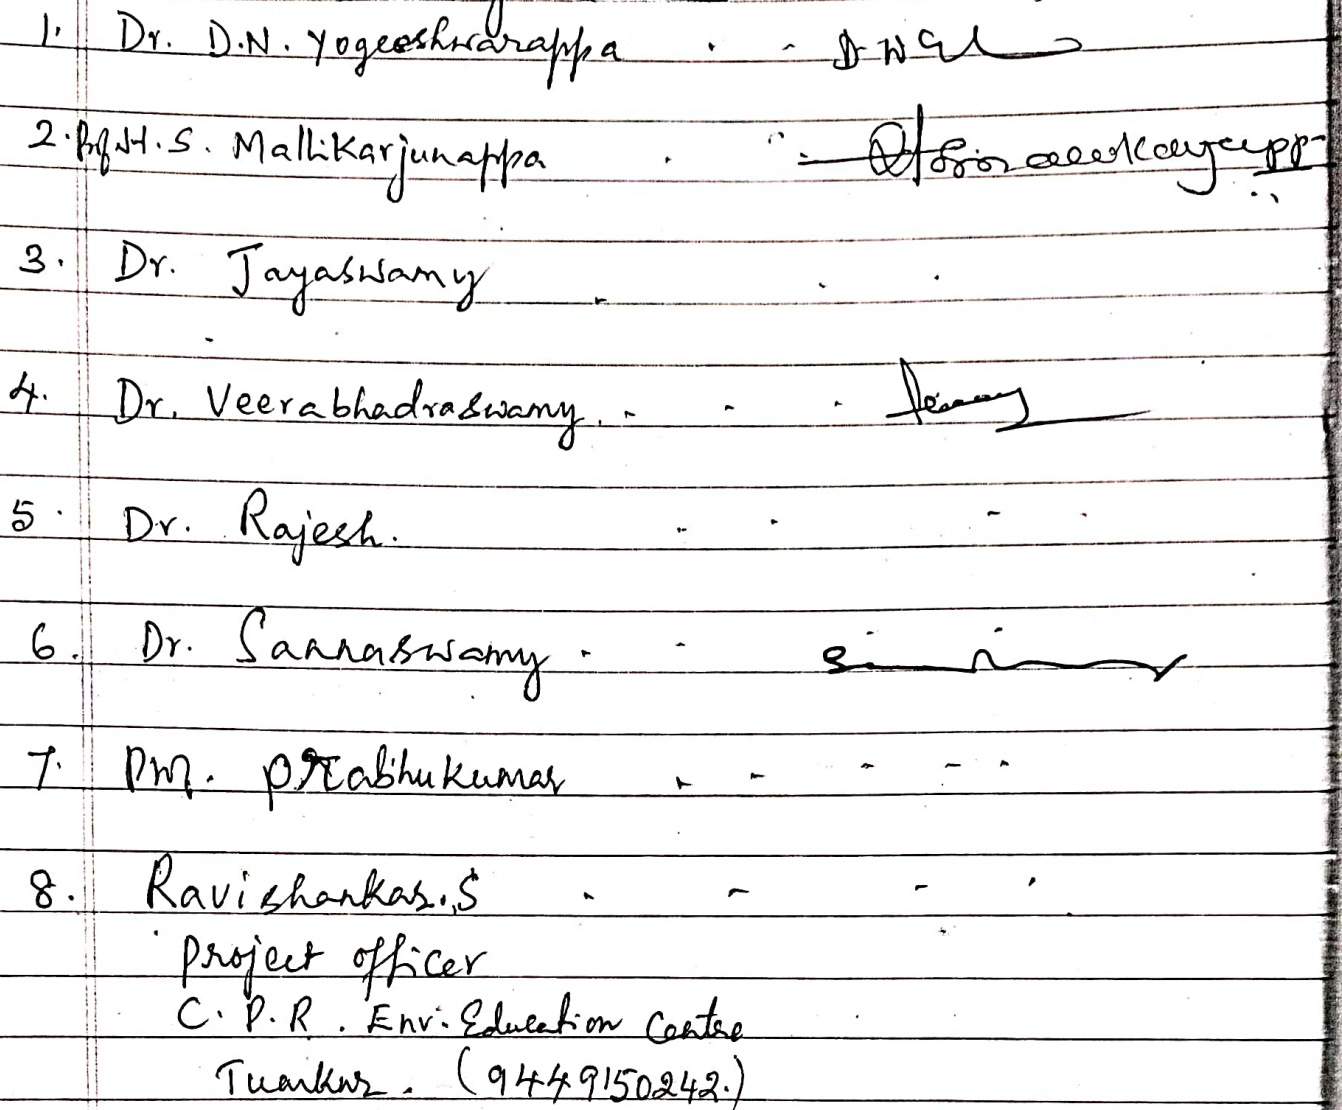 1. Dr. D.N. Yogeeshwarappa
2. Prof H.S. Mallikarjunappa
3. Dr. Jayaswamy
4. Dr. Veerabhadraswamy.
5. Dr. Rajesh.
6. Dr. Sannaswamy
7. Prabhukumar
8. Ravishankar.S
Project officer
C.P.R. Env. Education Centre
Tumkur. (9449150242.)